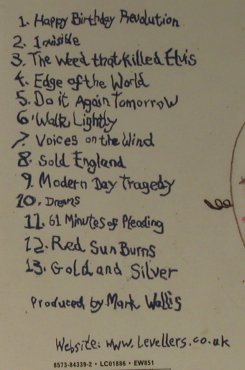 1. Happy Birthday Revolution
2. Invisible
3. The Weed that Killed Elvis
4. Edge of the World
5. Do it Again Tomorrow
6. Walk Lightly
7. Voices on the Wind
8. Sold England
9. Modern Day Tragedy
10. Dreams
11. 61 Minutes of Pleading
12. Red Sun Burns
13. Gold and Silver
Produced by Mark Wallis
Website: www.levellers.co.uk
8573-84339-2 • LC01886 • EW851